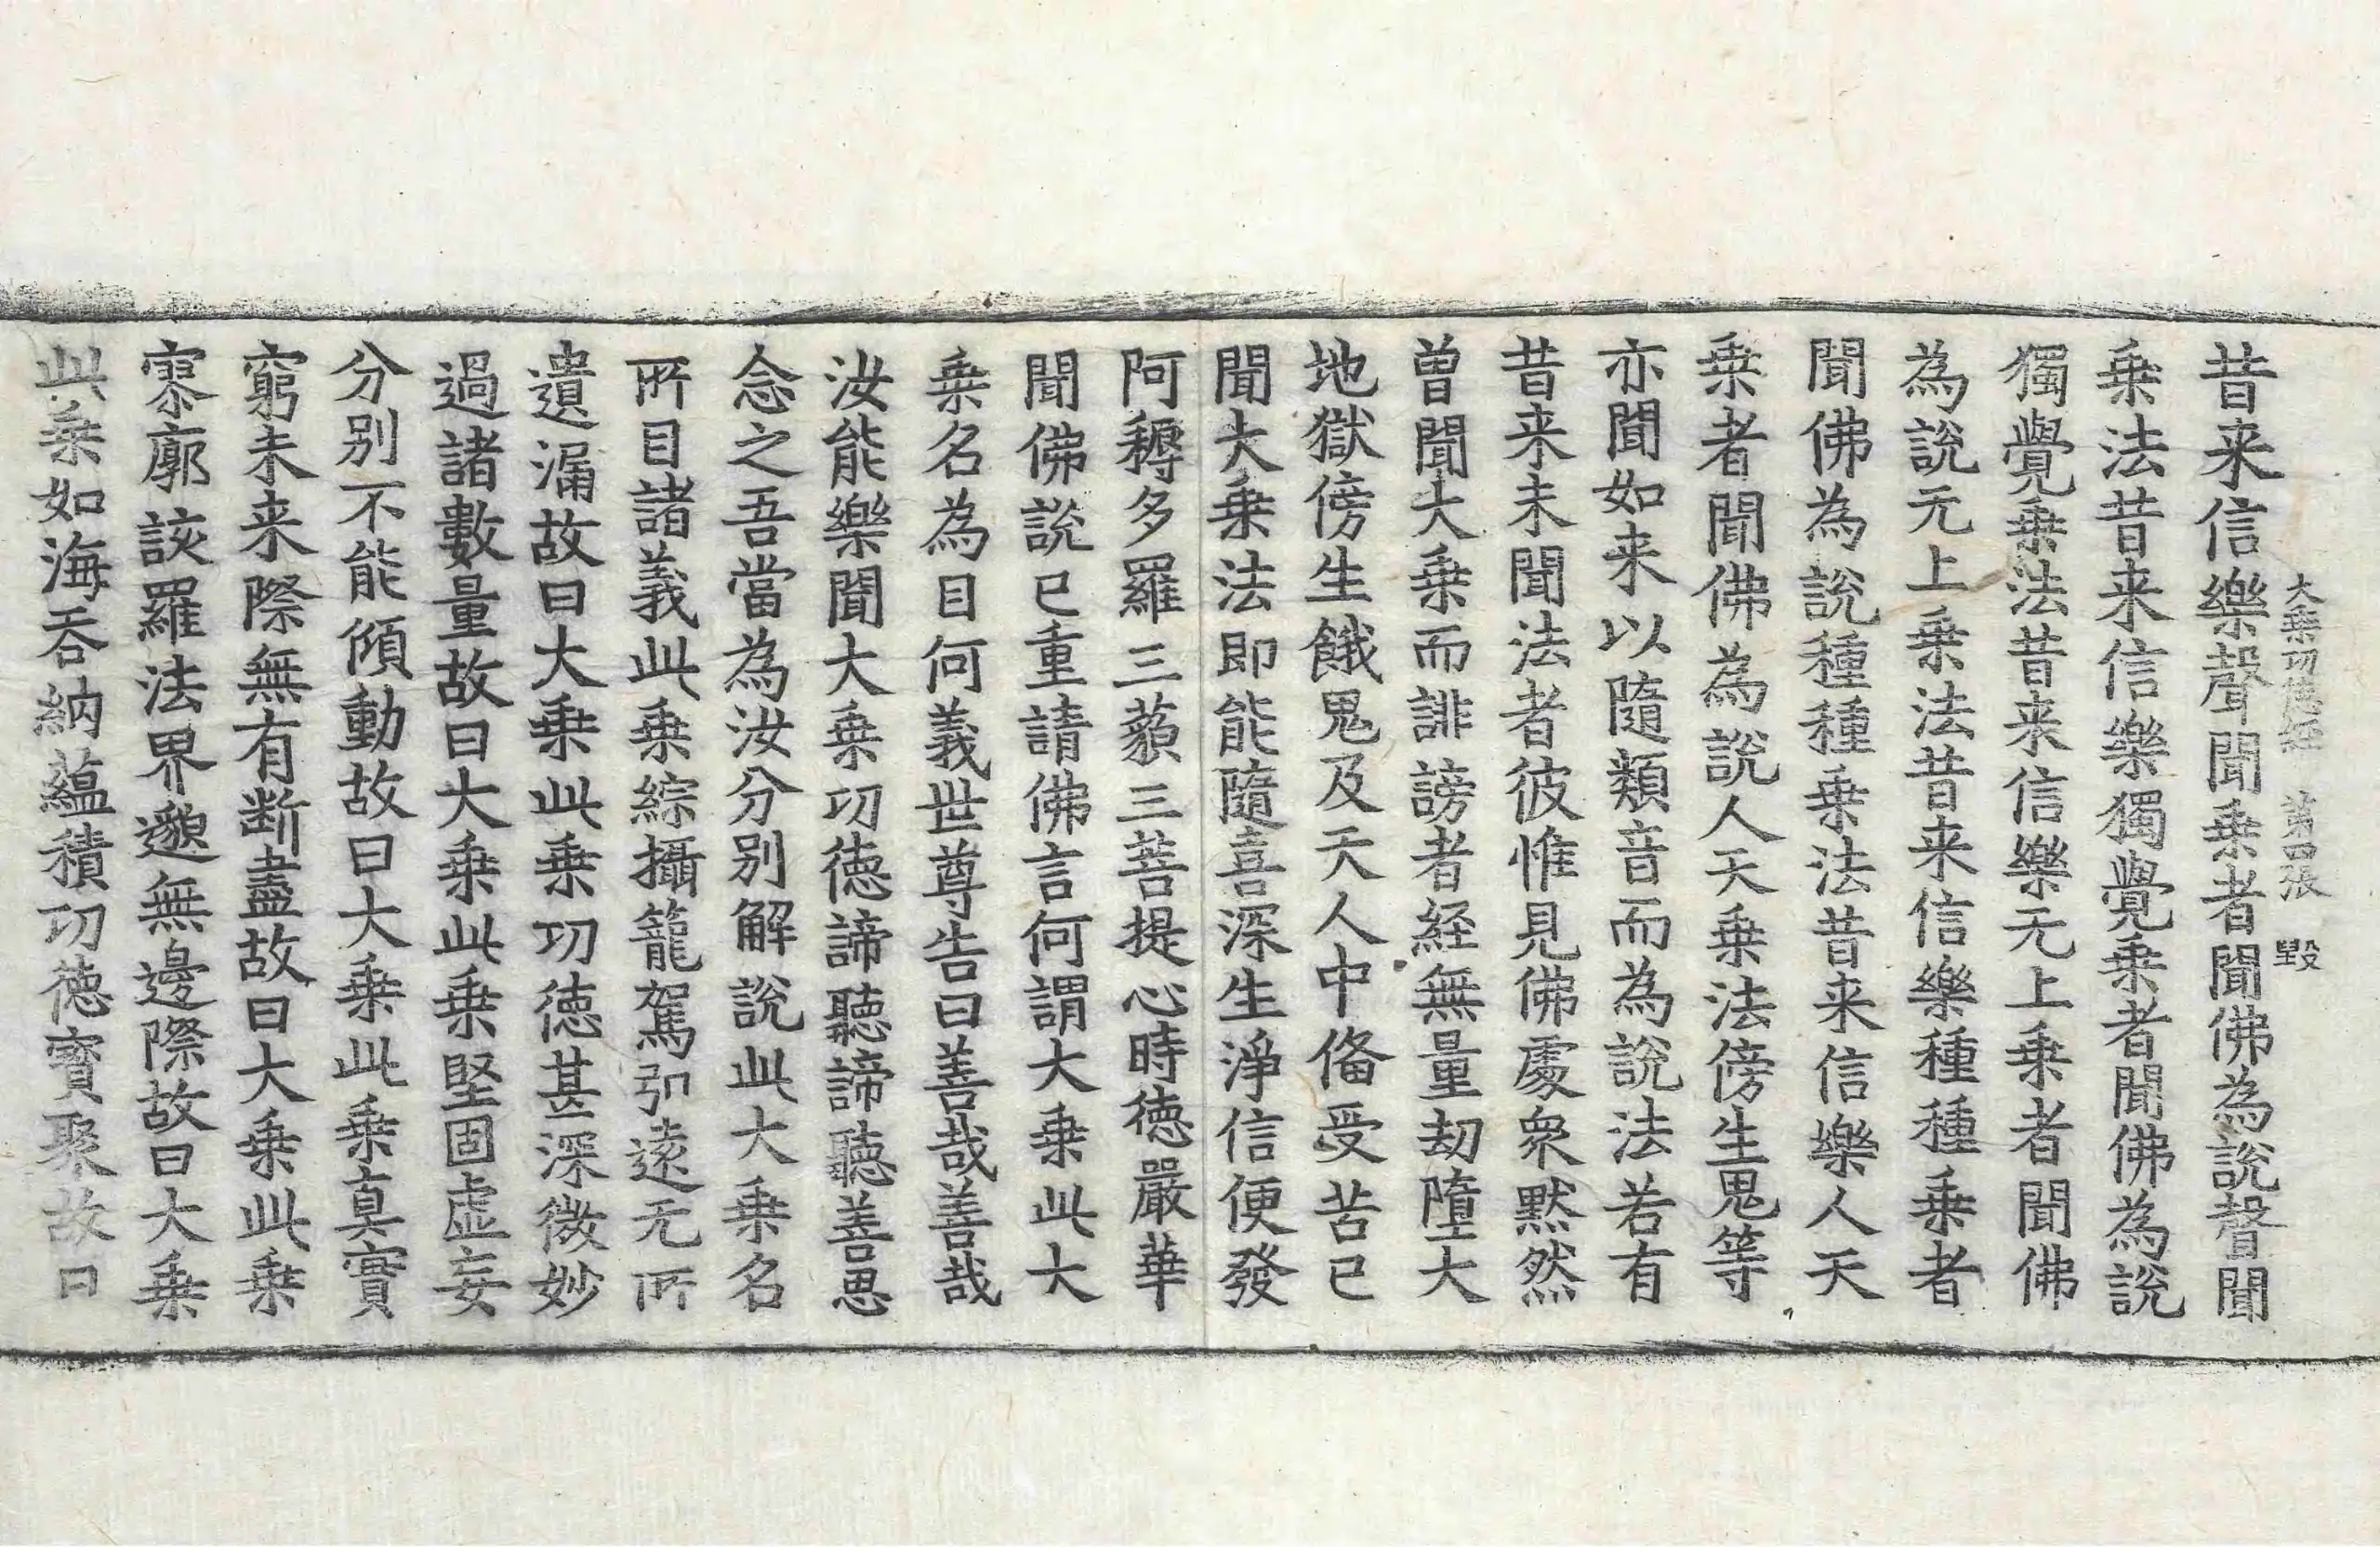 大乗功徳経 第四張 毀
昔来信樂聲聞乗者聞佛為説聲聞
乗法昔来信樂獨覺乗者聞佛為説
獨覺乗法昔来信樂无上乗者聞佛
為説无上乗法昔来信樂種種乗者
聞佛為説種種乗法昔来信樂人天
乗者聞佛為説人天乗法傍生鬼等
亦聞如来以隨類音而為説法若有
昔来未聞法者彼惟見佛處衆黙然
曽聞大乗而誹謗者経無量劫墮大
地獄傍生餓鬼及天人中俻受苦已
聞大乗法即能隨喜深生淨信便發
阿耨多羅三藐三菩提心時徳嚴華
聞佛説已重請佛言何謂大乗此大
乗名為目何義世尊告曰善哉善哉
汝能樂聞大乗功徳諦聽諦聽善思
念之吾當為汝分别解説此大乗名
所目諸義此乗綜攝籠駕引遠无所
遺漏故曰大乗此乗功徳甚深微妙
過諸數量故曰大乗此乗堅固虚妄
分别不能傾動故曰大乗此乗真實
窮未来際無有断盡故曰大乗此乗
寥廓該羅法界邈無邊際故曰大乗
此乗如海吞納蘊積功徳寳聚故曰